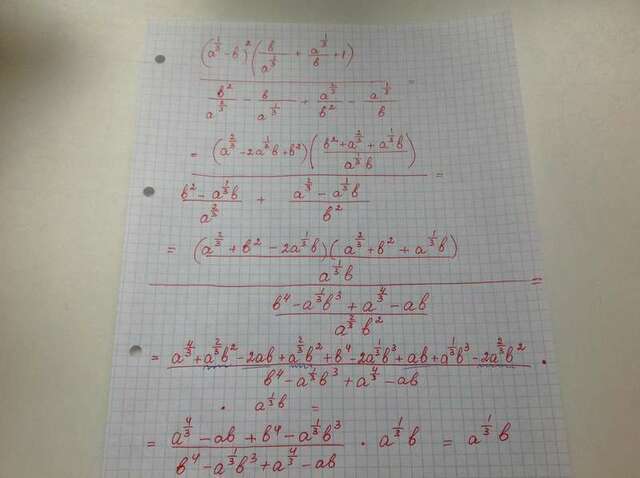 (a^(1/3) - b)^2 (b/a^(1/3) + a^(1/3)/b + 1)
/ (b^2/a^(2/3) - b/a^(1/3) + a^(2/3)/b^2 - a^(1/3)/b) =
= (a^(2/3) - 2a^(1/3)b + b^2) ((b^2 + a^(2/3) + a^(1/3)b)/(a^(1/3)b))
/ ((b^2 - a^(1/3)b)/a^(2/3) + (a^(2/3) - a^(1/3)b)/b^2) =
= (a^(2/3) + b^2 - 2a^(1/3)b)(a^(2/3) + b^2 + a^(1/3)b)
/ (a^(1/3)b)
/ ((b^4 - a^(1/3)b^3 + a^(4/3) - ab)
/ (a^(2/3)b^2)) =
= (a^(4/3) + a^(2/3)b^2 - 2ab + a^(2/3)b^2 + b^4 - 2a^(1/3)b^3 + ab + a^(1/3)b^3 - 2a^(2/3)b^2)
/ (b^4 - a^(1/3)b^3 + a^(4/3) - ab) ·
· a^(1/3)b =
= (a^(4/3) - ab + b^4 - a^(1/3)b^3) / (b^4 - a^(1/3)b^3 + a^(4/3) - ab) · a^(1/3)b = a^(1/3)b